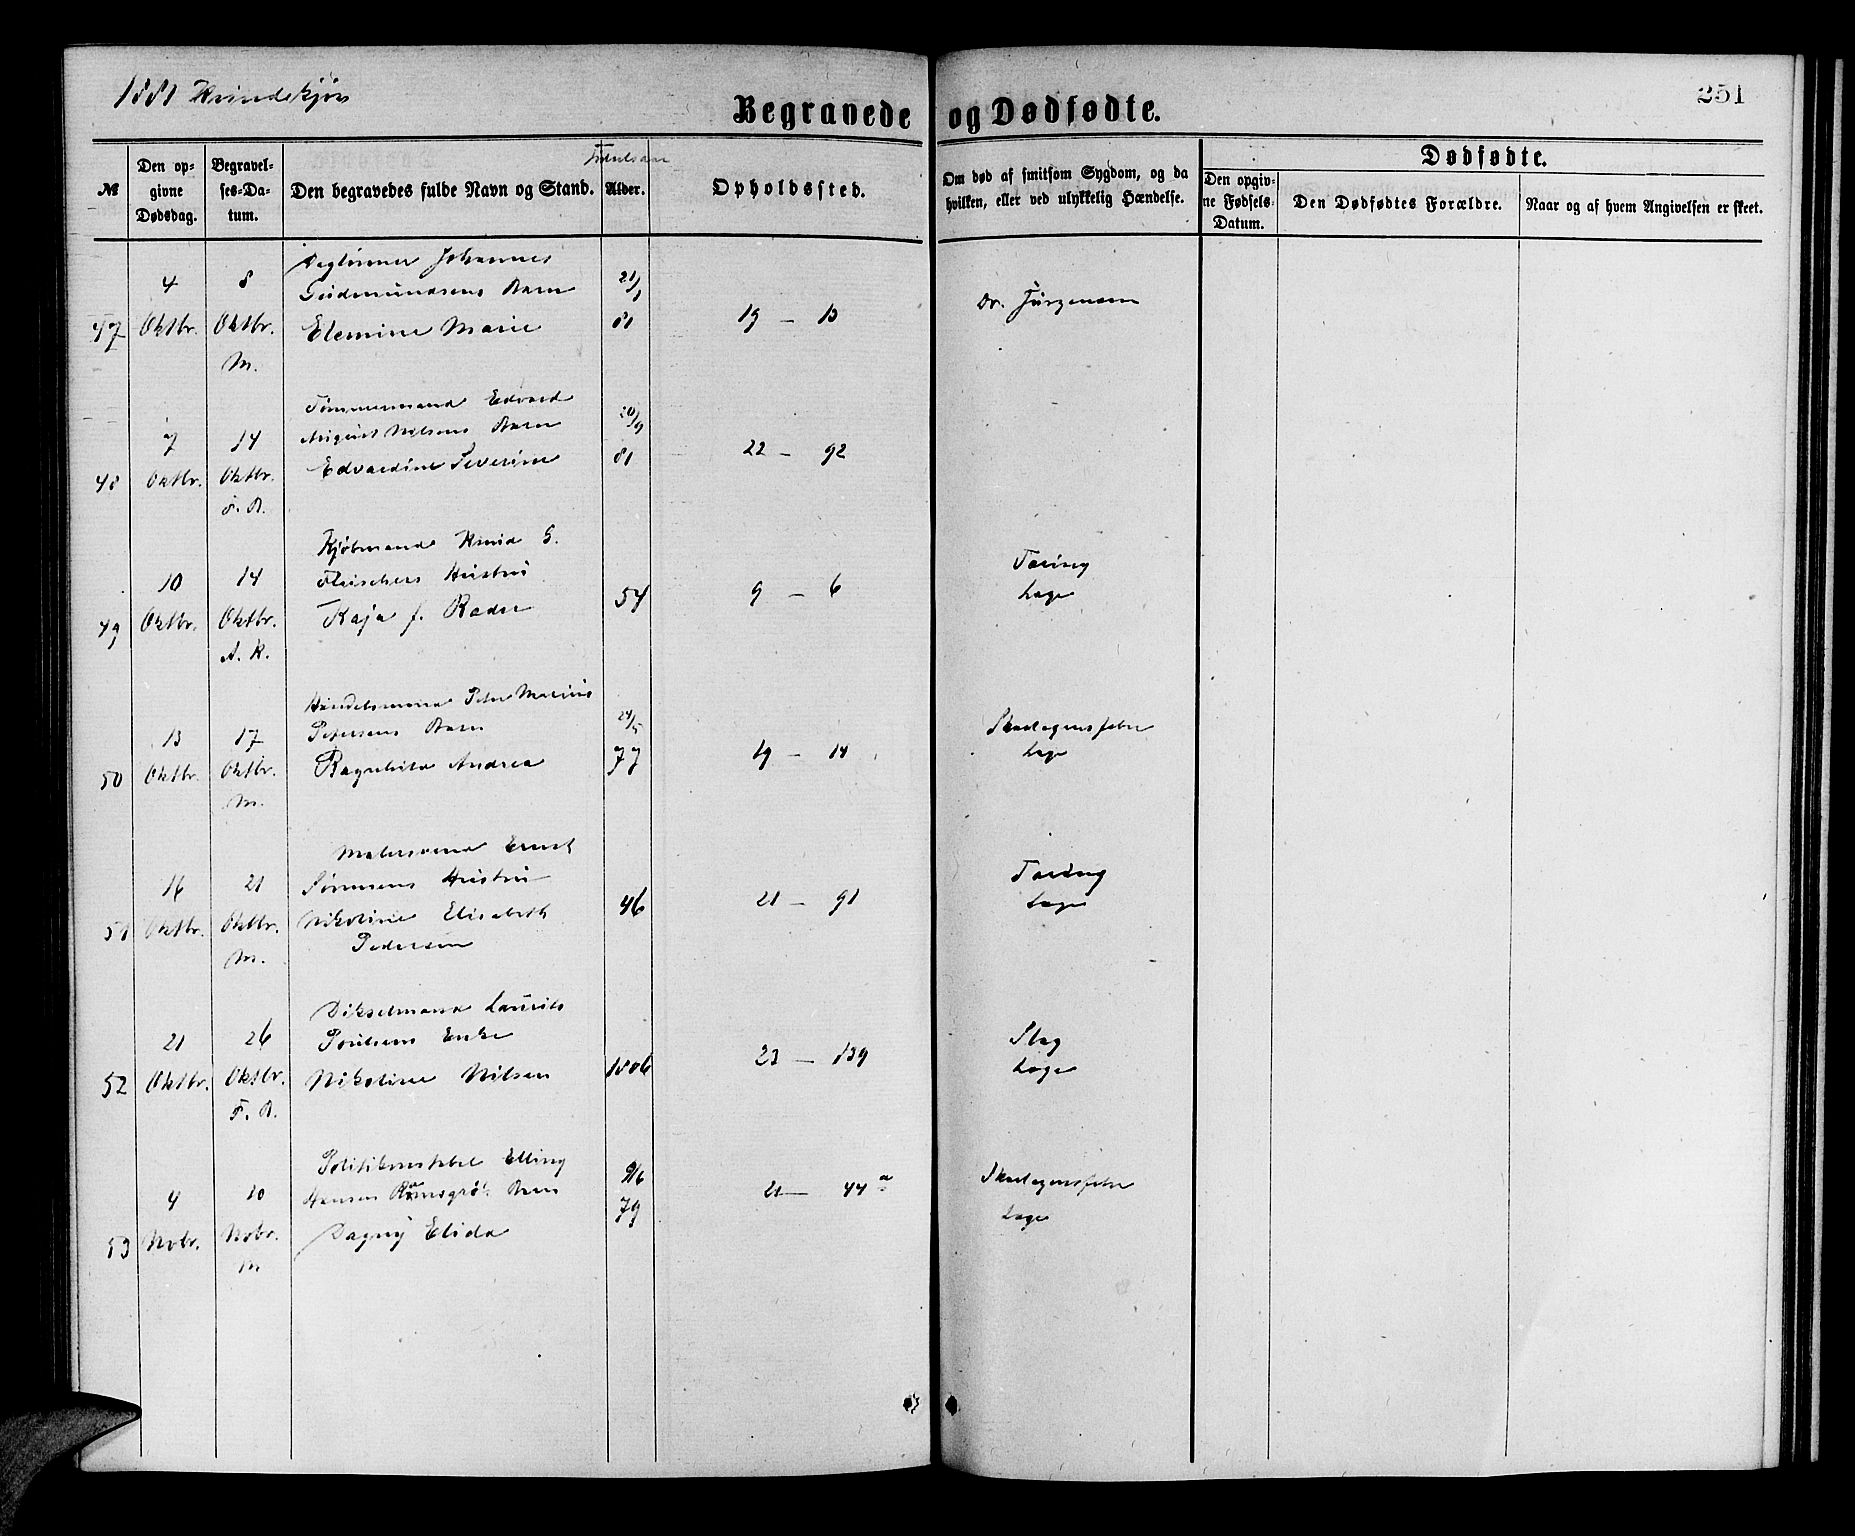 1881 Kvindekjøn
Begravede og Dødfødte.
251
№
Den opgivne Dødsdag.
Begravelses-Datum.
Den begravedes fulde Navn og Stand.
Alder.
Opholdssted.
Om død af smitsom Sygdom, og da hvilken, eller ved ulykkelig Hændelse.
Dødfødte.
Den opgivne Fødsels-Datum.
Den Dødfødtes Forældre.
Naar og af hvem Angivelsen er skeet.
Daglønner Johannes
4 8 Gudmundsens Barn 21/1 Dr. Jürgensen
47 Oktbr. Oktbr. Elemine Marie 81 19 — 13
M.
Tømmermand Edvard 20/9
7 14 August Nilsens Barn
48 Oktbr. Oktbr. Edvardine Severine 81 22 — 92
F. B.
Kjøbmand Knud G.
10 14 Fleischers Hustru
49 Oktbr. Oktbr. Kaja f. Rader 54 9 — 6 Læge
A. K.
Handelsmand Peter Marius 24/5 Skarlagensfeber
13 17 Petersens Barn
50 Oktbr. Oktbr. Ragnhild Andrea 77 19 — 14 Læge
M.
Malersvend Ernst
16 21 Sørensens Hustru
51 Oktbr. Oktbr. Nikoline Elisabeth 46 21 — 91 Læge
M. Pedersen
Laurits
21 26 Poulsens Enke Slag
52 Oktbr. Oktbr. Nikoline Nilsen 1806 23 — 139 Læge
F. B.
Politikonstabel Elling 9/6 Skarlagensfeber
4 10 Hansen Barn 79 21 — 44 a
53 Novbr. Novbr. Dagny Elida Læge
M